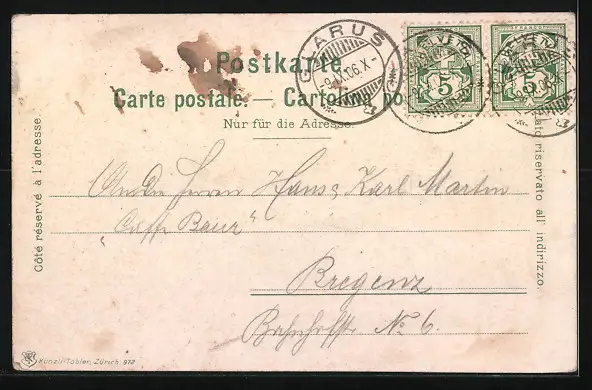 Postkarte.
Carte postale. — Cartolina po
Nur für die Adresse.
GLARUS
-9.IX.06.X-
5
5
Côté réservé à l'adresse.
lato riservato all' indirizzo.
An die Herren Hans & Karl Martin
„Caffe Baur“
Bregenz
Bahnhofstr. No 6.
Künzli-Tobler, Zürich. 977